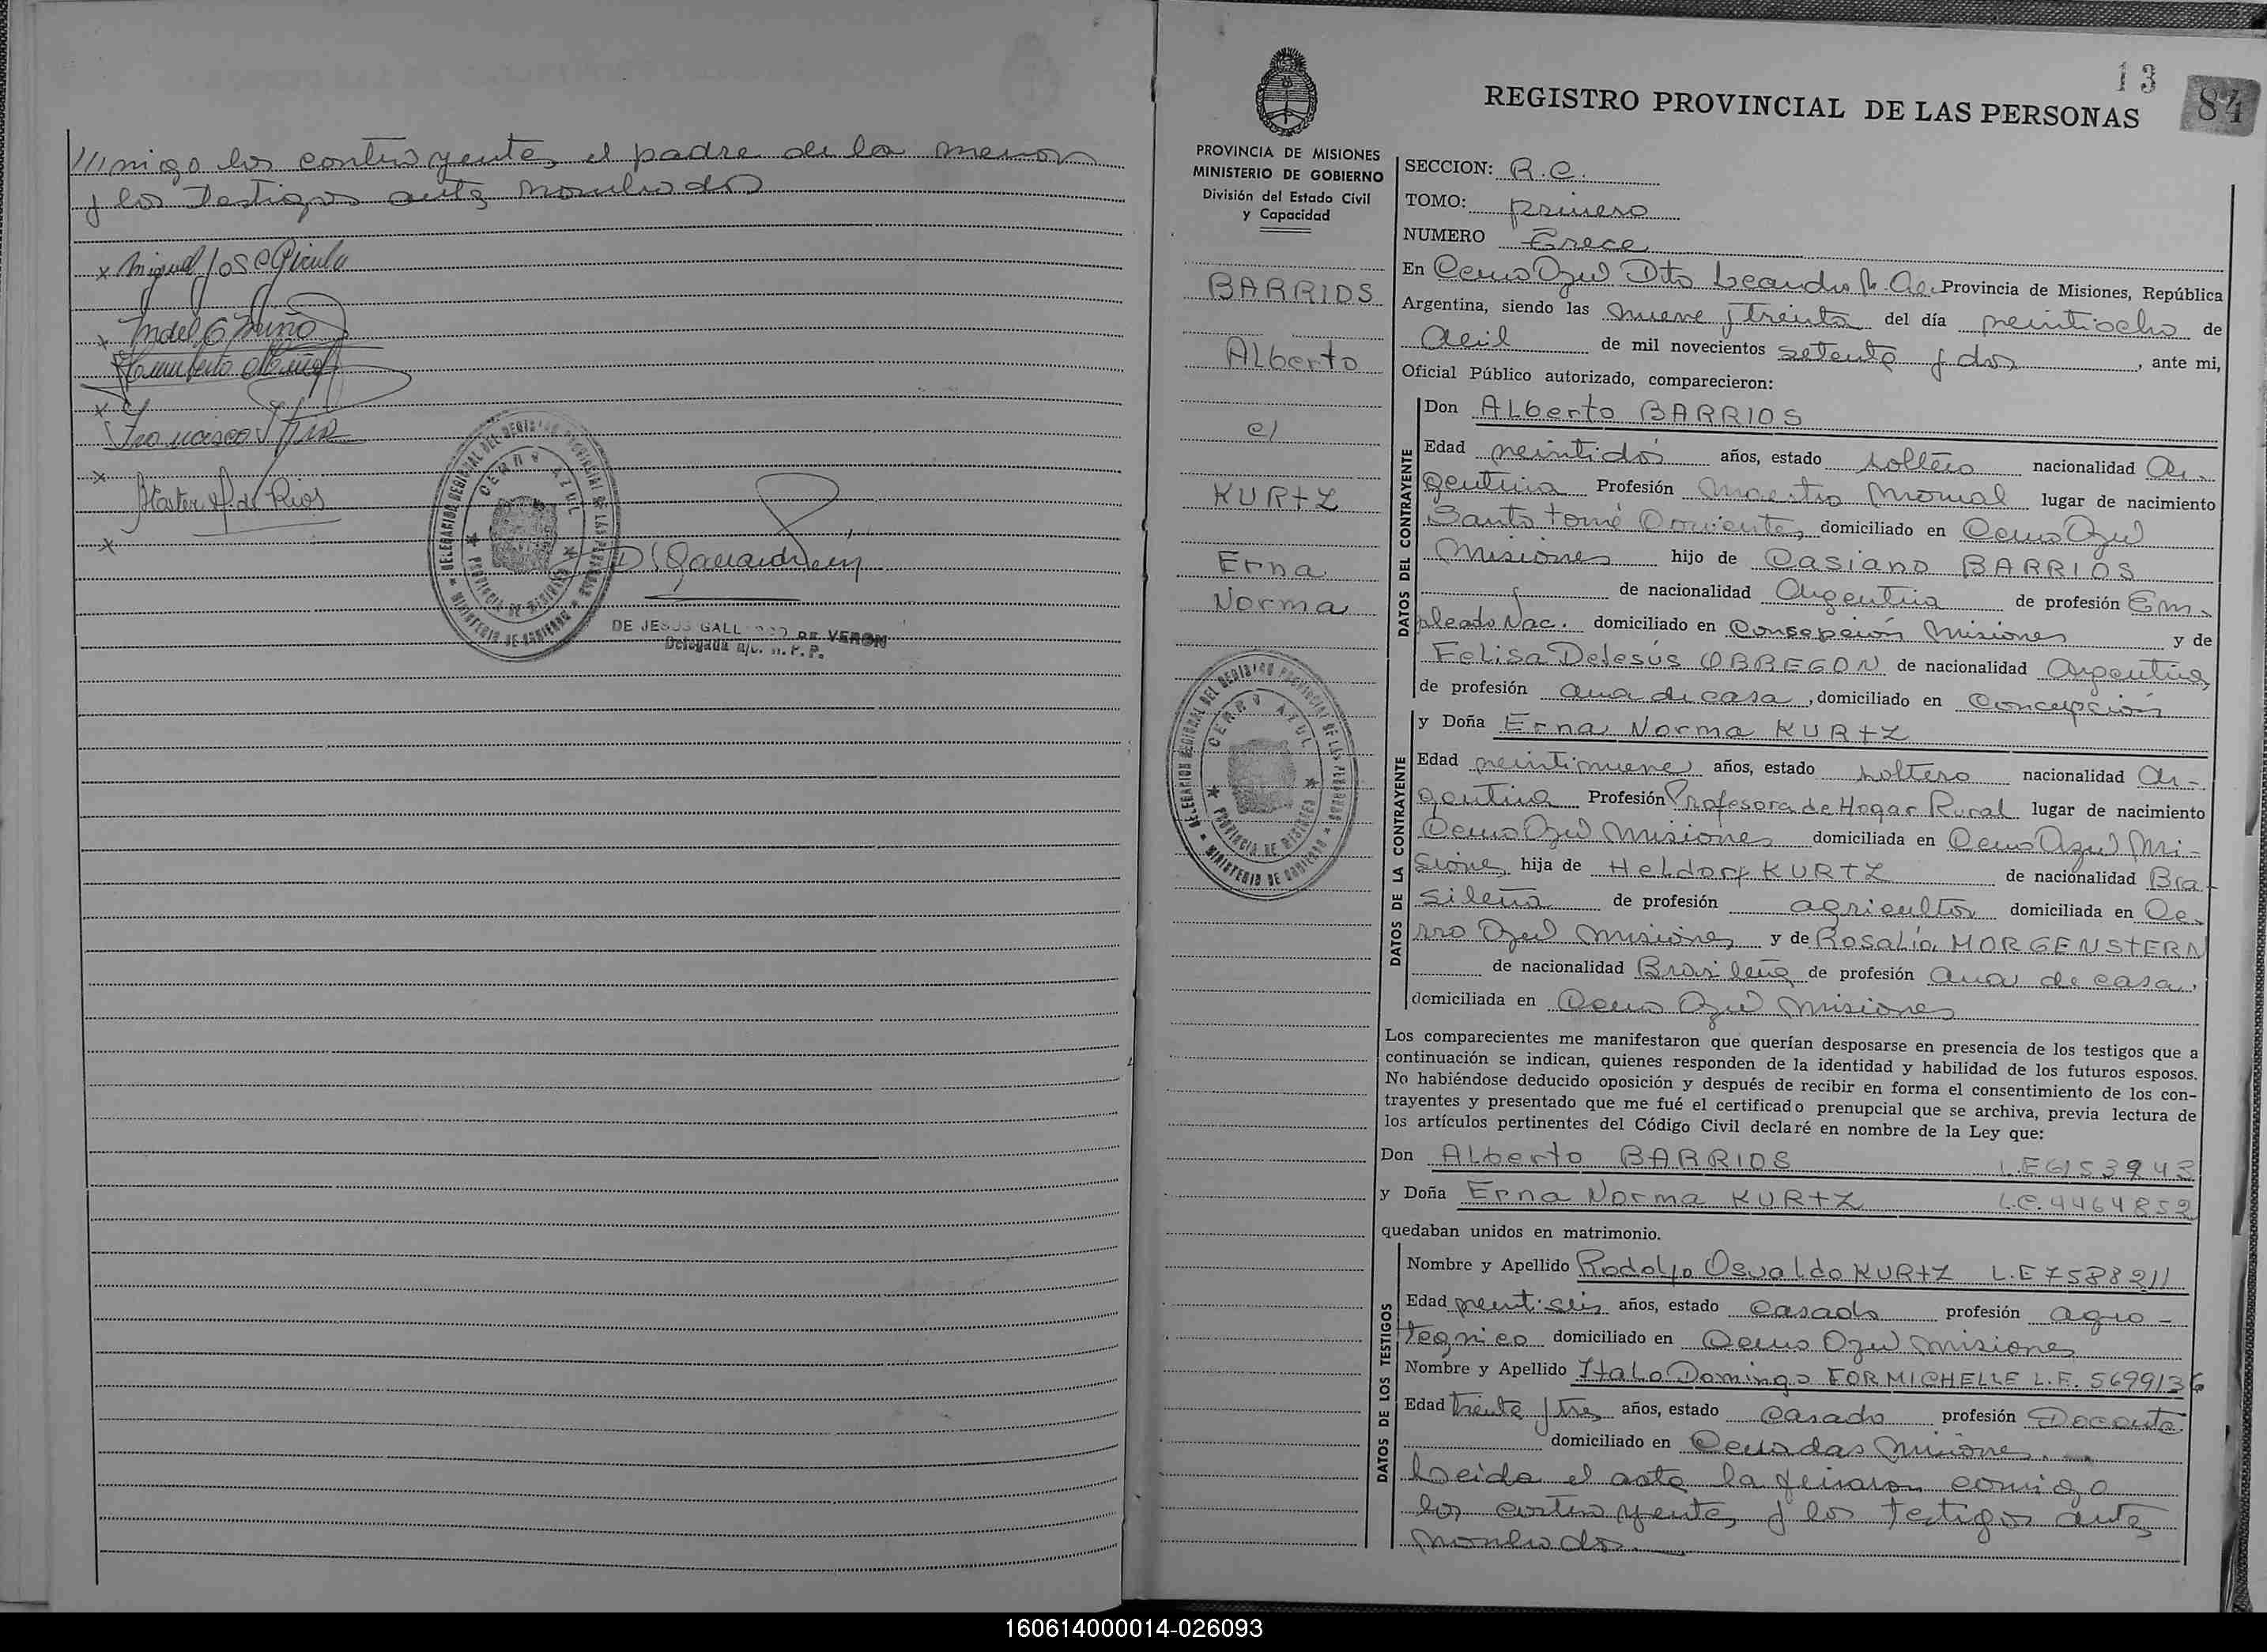 ///migo los contrayentes, el padre de la menor
y los testigos antes nombrados
x Miguel José
x
x
Francisco
x
x
DELEGACION REGIONAL DEL REGISTRO PROVINCIAL DE LAS PERSONAS
CERRO AZUL
PROVINCIA DE MISIONES
MINISTERIO DE GOBIERNO
DE JESUS GALL DE VERON
Delegada
13
84
REGISTRO PROVINCIAL DE LAS PERSONAS
PROVINCIA DE MISIONES
MINISTERIO DE GOBIERNO
División del Estado Civil
y Capacidad
BARRIOS
Alberto
c/
KURTZ
Erna
Norma
DELEGACION REGIONAL DEL REGISTRO PROVINCIAL DE LAS PERSONAS
CERRO AZUL
PROVINCIA DE MISIONES
MINISTERIO DE GOBIERNO
SECCION: R.C.
TOMO: primero
NUMERO Trece
En Cerro Azul Dto Leandro N. Al. Provincia de Misiones, República
Argentina, siendo las nueve y treinta del día veintiocho de
Abril de mil novecientos setenta y dos, ante mi,
Oficial Público autorizado, comparecieron:
DATOS DEL CONTRAYENTE
Don Alberto BARRIOS
Edad veintidós años, estado soltero nacionalidad Ar-
gentina Profesión Maestro Normal lugar de nacimiento
Santo Tomé Corrientes, domiciliado en Cerro Azul
Misiones hijo de Casiano BARRIOS
de nacionalidad Argentina de profesión Em-
pleado Nac. domiciliado en Consepción Misiones y de
Felisa DeJesús OBREGON de nacionalidad Argentina,
de profesión ama de casa, domiciliado en Concepción
DATOS DE LA CONTRAYENTE
y Doña Erna Norma KURTZ
Edad veintinueve años, estado soltera nacionalidad Ar-
gentina Profesión Profesora de Hogar Rural lugar de nacimiento
Cerro Azul Misiones domiciliada en Cerro Azul Mi-
siones, hija de Heldorf KURTZ de nacionalidad Bra-
sileña de profesión agricultor domiciliada en Ce-
rro Azul Misiones y de Rosalía MORGENSTERN
de nacionalidad Brasileña de profesión ama de casa,
domiciliada en Cerro Azul Misiones
Los comparecientes me manifestaron que querían desposarse en presencia de los testigos que a
continuación se indican, quienes responden de la identidad y habilidad de los futuros esposos.
No habiéndose deducido oposición y después de recibir en forma el consentimiento de los con-
trayentes y presentado que me fué el certificado prenupcial que se archiva, previa lectura de
los artículos pertinentes del Código Civil declaré en nombre de la Ley que:
Don Alberto BARRIOS L.E
y Doña Erna Norma KURTZ L.C. 4464852
quedaban unidos en matrimonio.
DATOS DE LOS TESTIGOS
Nombre y Apellido Rodolfo Osvaldo KURTZ L.E 7588211
Edad veintiseis años, estado casado profesión agro-
tegnico domiciliado en Cerro Azul Misiones
Nombre y Apellido Italo Domingo FORMICHELLE L.E. 5699136
Edad treinta y tres años, estado casado profesión Docente
domiciliado en Misiones.
Leida el acta la firmaron conmigo
los contrayentes y los testigos antes
nombrados.
160614000014-026093